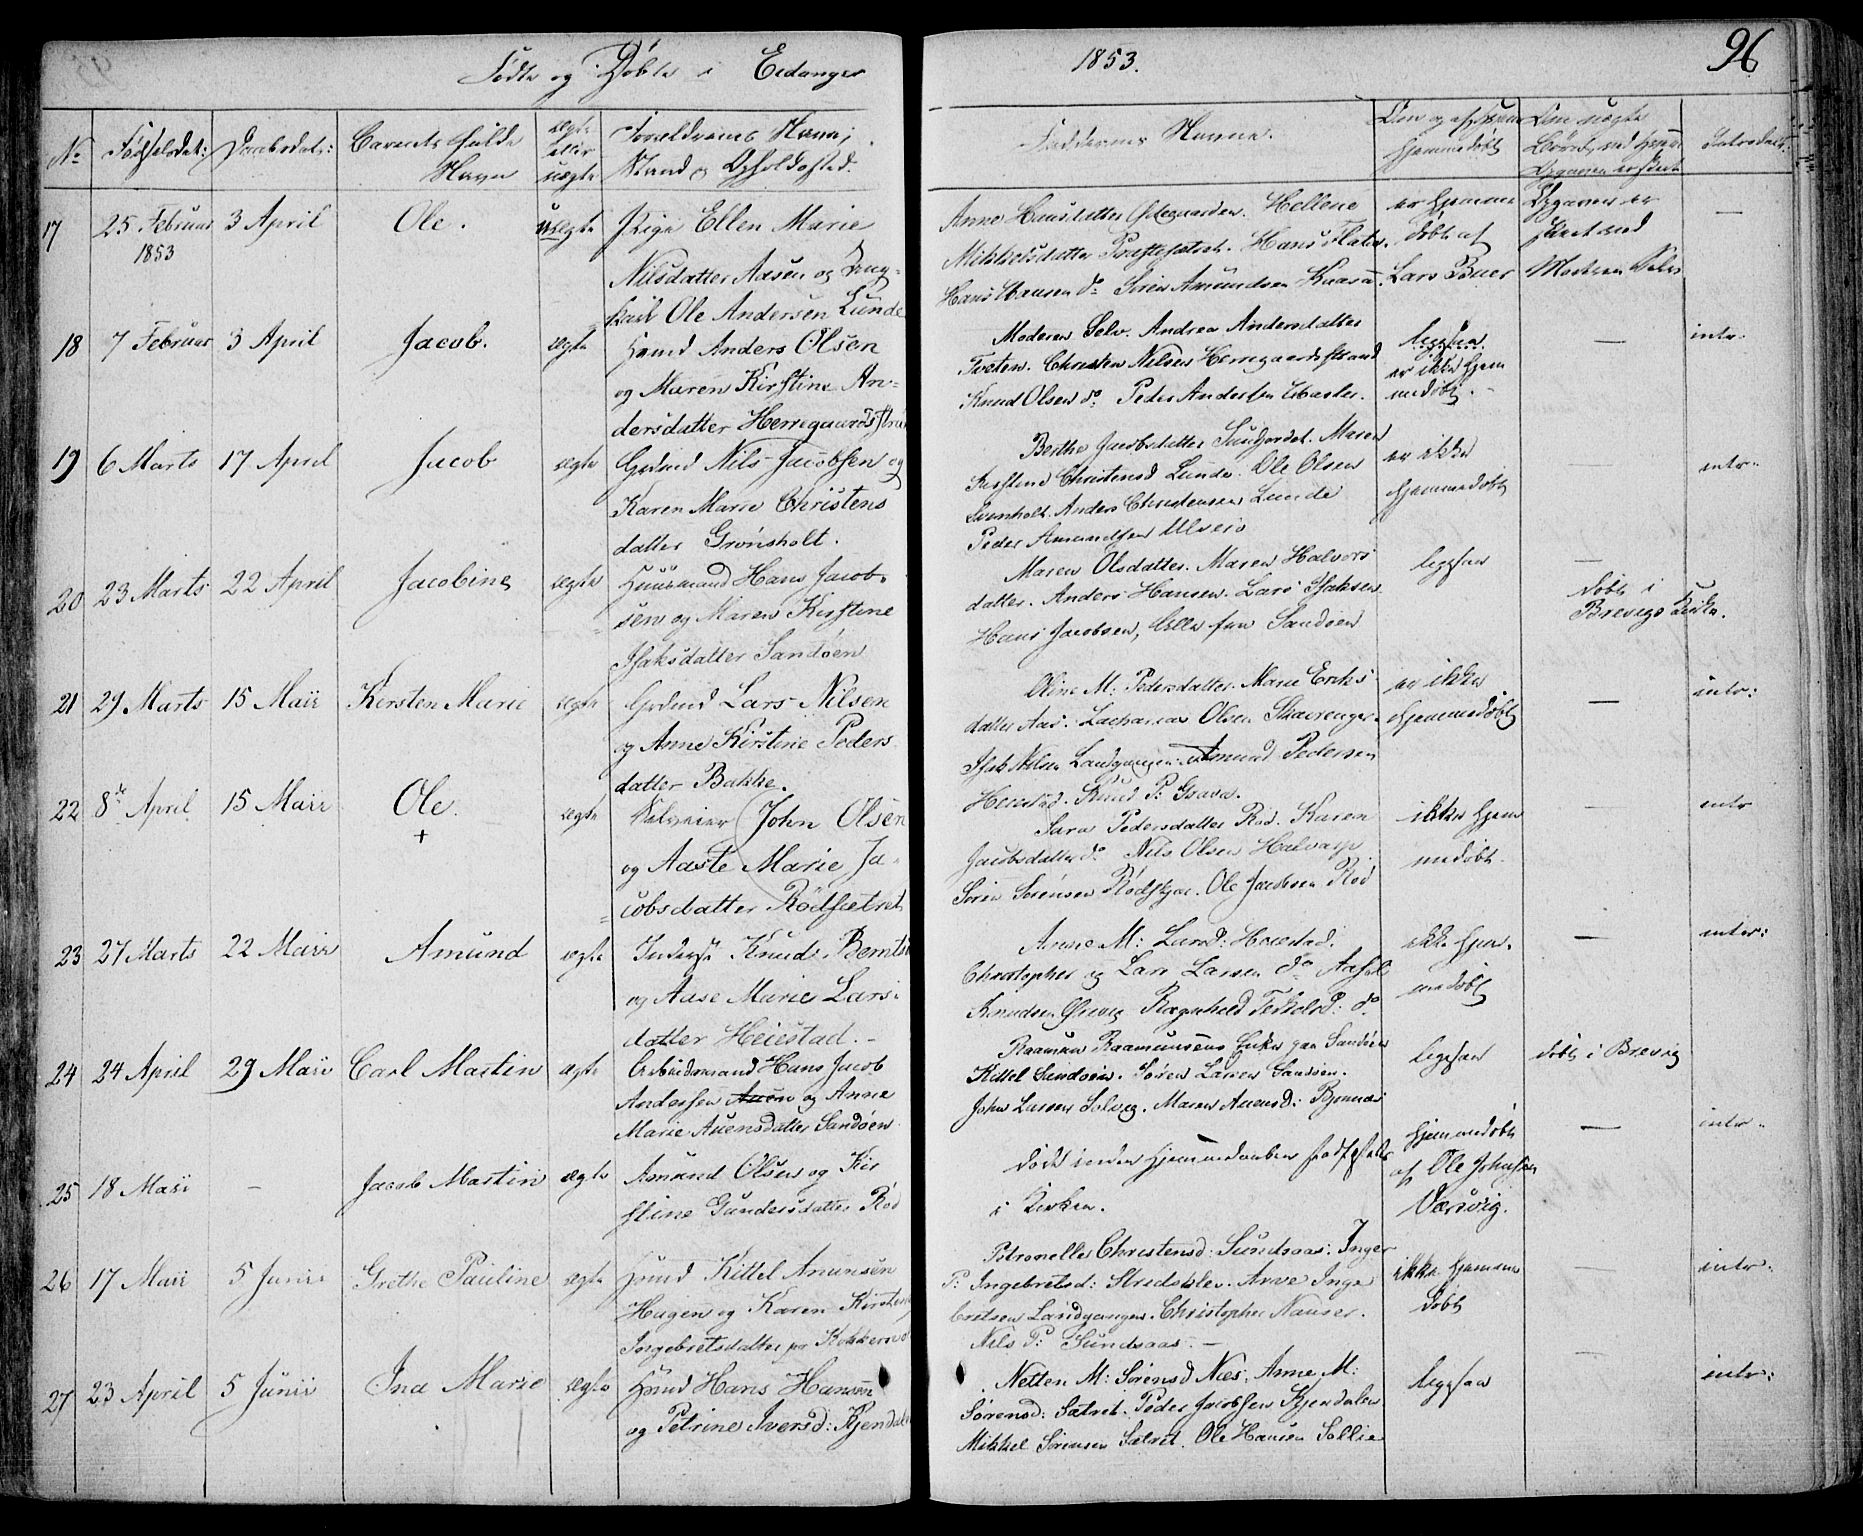 Fødte og Døbte i Eidanger
1853.
96
No
Fødselsdat:
Daabsdat:
Barnets fulde
Navn
ægte
eller
uægte
Forældrenes Navn,
Stand og Opholdssted.
Faddernes Navne.
hjemmedøbt
Introduct:
17
25 Februar
1853
3 April
Ole.
uægte
Pige Ellen Marie
Nilsdatter Aasen og Ung-
karl Ole Andersen Lunde
Hellene
Mikkelsdatter Præstesætret. Hans
Hans Hansen do Søren Amundsen Kaasa.
er hjemme
døbt af
Lars Buer
Opgaven er
skeet ved
Moderen Selv
—
18
7 Februar
3 April
Jacob.
ægte
Huusmd Anders Olsen
og Maren Kirstine An-
dersdatter Herregaardsstrand
Moderen Selv. Andrea Andersdatter
Tveten. Christen Nilsen Herregaardsstrand
Knud Olsen do Peder Andersen
ligesaa
er ikke hjem
medøbt.
—
intr.
19
6 Marts
17 April
Jacob
ægte
Grdmd Nils Jacobsen og
Karen Marie Christens
datter Grønsholt.
Berthe Jacobsdatter Maren
Kirstine Christensd Lunde. Ole Olsen
Anders Christensen Lunde
Peder Amundsen
er ikke
hjemmedøbt
—
intr.
20
23 Marts
22 April
Jacobine
ægte
Huusmand Hans Jacob-
sen og Maren Kirstine
Isaksdatter Sandøen
Maren Olsdatter. Maren Halvors
datter. Anders Hansen. Lars Isaksen
Hans Jacobsen, Alle fra Sandøen
ligesaa
—
døbt i
Brevigs Kirke.
21
29 Marts
15 Maii
Kirsten Marie
ægte
Grdmd Lars Nilsen
og Anne Kirstine Peders
datter Bakke.
Oline M: Pedersdatter. Maren Eriks
datter Aas. Zacharias Olsen Skavrenger.
Isak Nilsen Landgangen. Amund Pedersen
Heiestad. Knud P: Grava.
er ikke
hjemmedøbt
—
intr:
22
8de April
15 Maii
Ole.
+
ægte
Selveier John Olsen
og Aaste Marie Ja-
cobsdatter Rödsætret
Sara Pedersdatter Rød. Karen
Jacobsdatter do Nils Olsen
Søren Sørensen Rødskjær. Ole Jacobsen Rød
ikke hjem
medøbt.
—
intr
23
27 Marts
22 Maii
Amund
ægte
Inderst Knud Berntsen
og Aase Marie Lars-
datter Heiestad.
Anne M: Larsd: Heiestad.
Christopher og Lars Larsen do
Knudsen Ragnhild do
ikke hjem-
medøbt
—
inter:
24
24 April
29 Maii
Carl Martin
ægte
Arbeidsmand Hans Jacob
Andersen Auen og Anne
Marie Auensdatter Sandøen
Raamun Raamunsens Enke paa Sandøen
Kittel Sandøen. Søren Larsen Sandøen.
John Larsen Solvig. Maren Auensd: Bjønnæs
ligesaa
døbt i Brevig
25
18 Maii
—
Jacob Martin
ægte
Amund Olsen og Kir
stine Gundersdatter Rød
Død inden Hjemmedaaben stadfæstedes
i Kirken.
hjemmedøbt
af Ole Johnsen
Versvig.
—
intr.
26
17 Maii
5 Junii
Grethe Pauline
ægte
Huusmd Kittel Amunsen
Hagen og Karen Kirstine
Ingebretsdatter
Petronelle Christensd: Sundsaas. Inger
P: Ingebretsd: Stridsklev. Arve Inge
bretsen Landgangen. Christopher
Nils P: Sundsaas.
ikke hjemme
døbt
—
intr.
27
23 April
5 Junii
Ina Marie
ægte
Huusmd Hans Hansen
og Petrine Iversd: Kjendalen
Netten M: Sørensd Næs, Anne M:
Sørensd: Sætret. Peder Jacobsen Kjendalen
Mikkel Sørensen Sætret. Ole Hansen Sollie
ligesaa
—
intr: